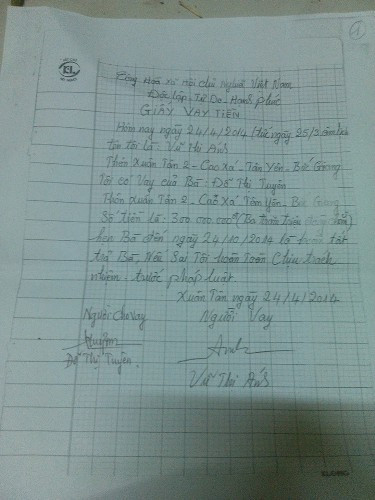 1
KL
Cộng Hoà xã Hội chủ nghĩa Việt Nam
Độc lập - Tự Do - Hạnh phúc
GIẤY VAY TIỀN
Hôm nay ngày 24/4/2014 (tức ngày 25/3 âm lịch
tên tôi là: Vũ Thị Ánh
Thôn Xuân Tân 2 - Cao Xá - Tân Yên - Bắc Giang
Tôi có vay của Bà: Đỗ Thị Tuyên
Thôn Xuân Tân 2 - Cao Xá - Tân Yên - Bắc Giang
Số tiền là: 300.000.000đ (Ba trăm triệu đồng chẵn)
hẹn Bà đến ngày 24/10/2014 là hoàn tất
trả Bà, Nếu Sai Tôi hoàn Toàn Chịu trách
nhiệm trước pháp luật
Xuân Tân ngày 24/4/2014
Người Cho vay Người Vay
Tuyên Ánh
Đỗ Thị Tuyên
Vũ Thị Ánh
KLONG